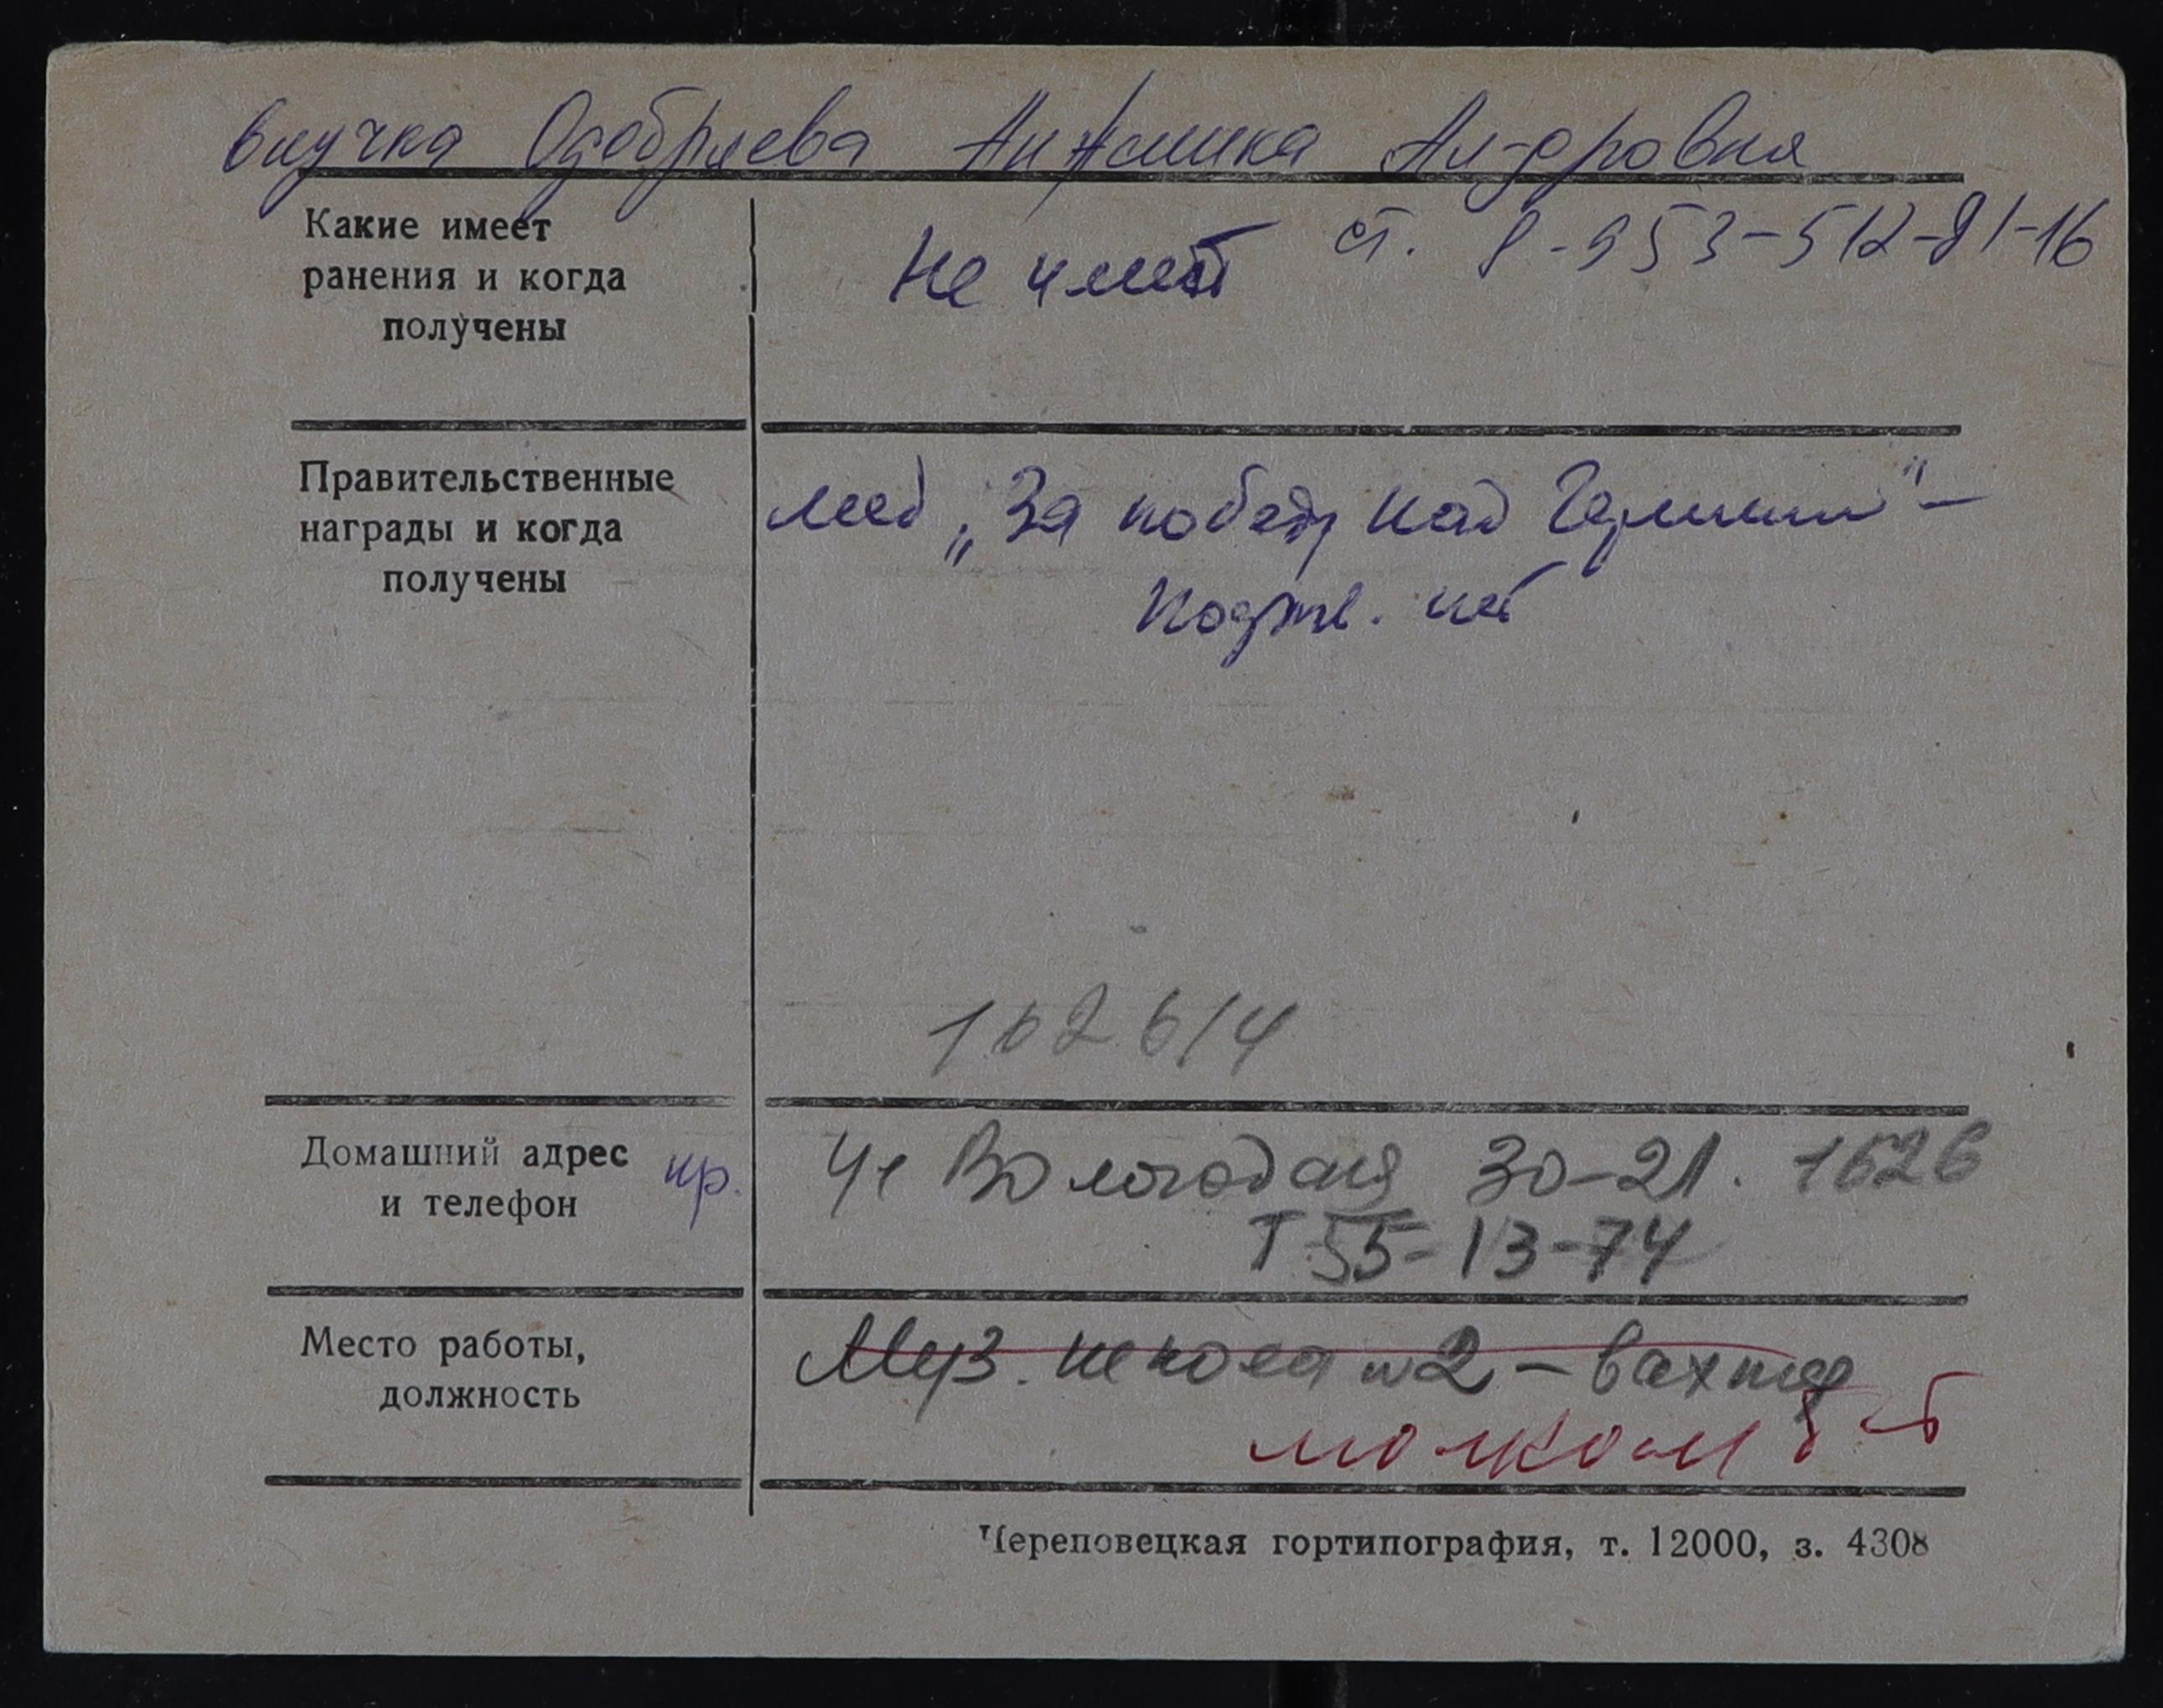 внучка Одобряева Анжелика Ал-дровна
ст. 8-953-512-81-16
Какие имеет
ранения и когда
получены
Не имеет
Правительственные
награды и когда
получены
мед „За победу над Германией" –
Подтв. нет
102614
Домашний адрес
и телефон
пр.
ул Вологодская 30-21. 1626
Т 55-13-74
Место работы,
должность
Муз. школа №2 – вахтер
Череповецкая гортипография, т. 12000, з. 4308